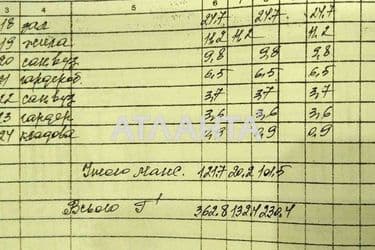 3 4 5 6 7 8
18 зал 24,7 24,7 24,7
19 жила 11,2 11,2 11,2
20 сан.вуз 9,8 9,8 9,8
21 гардероб 6,5 6,5 6,5
22 сан.вуз 3,7 3,7 3,7
23 гардер 3,6 3,6 3,6
24 кладова 0,9 0,9
АТЛАНТА
Итого манс. 121.7 20.2 101.5
Всього Г' 362.8 132.4 230.4